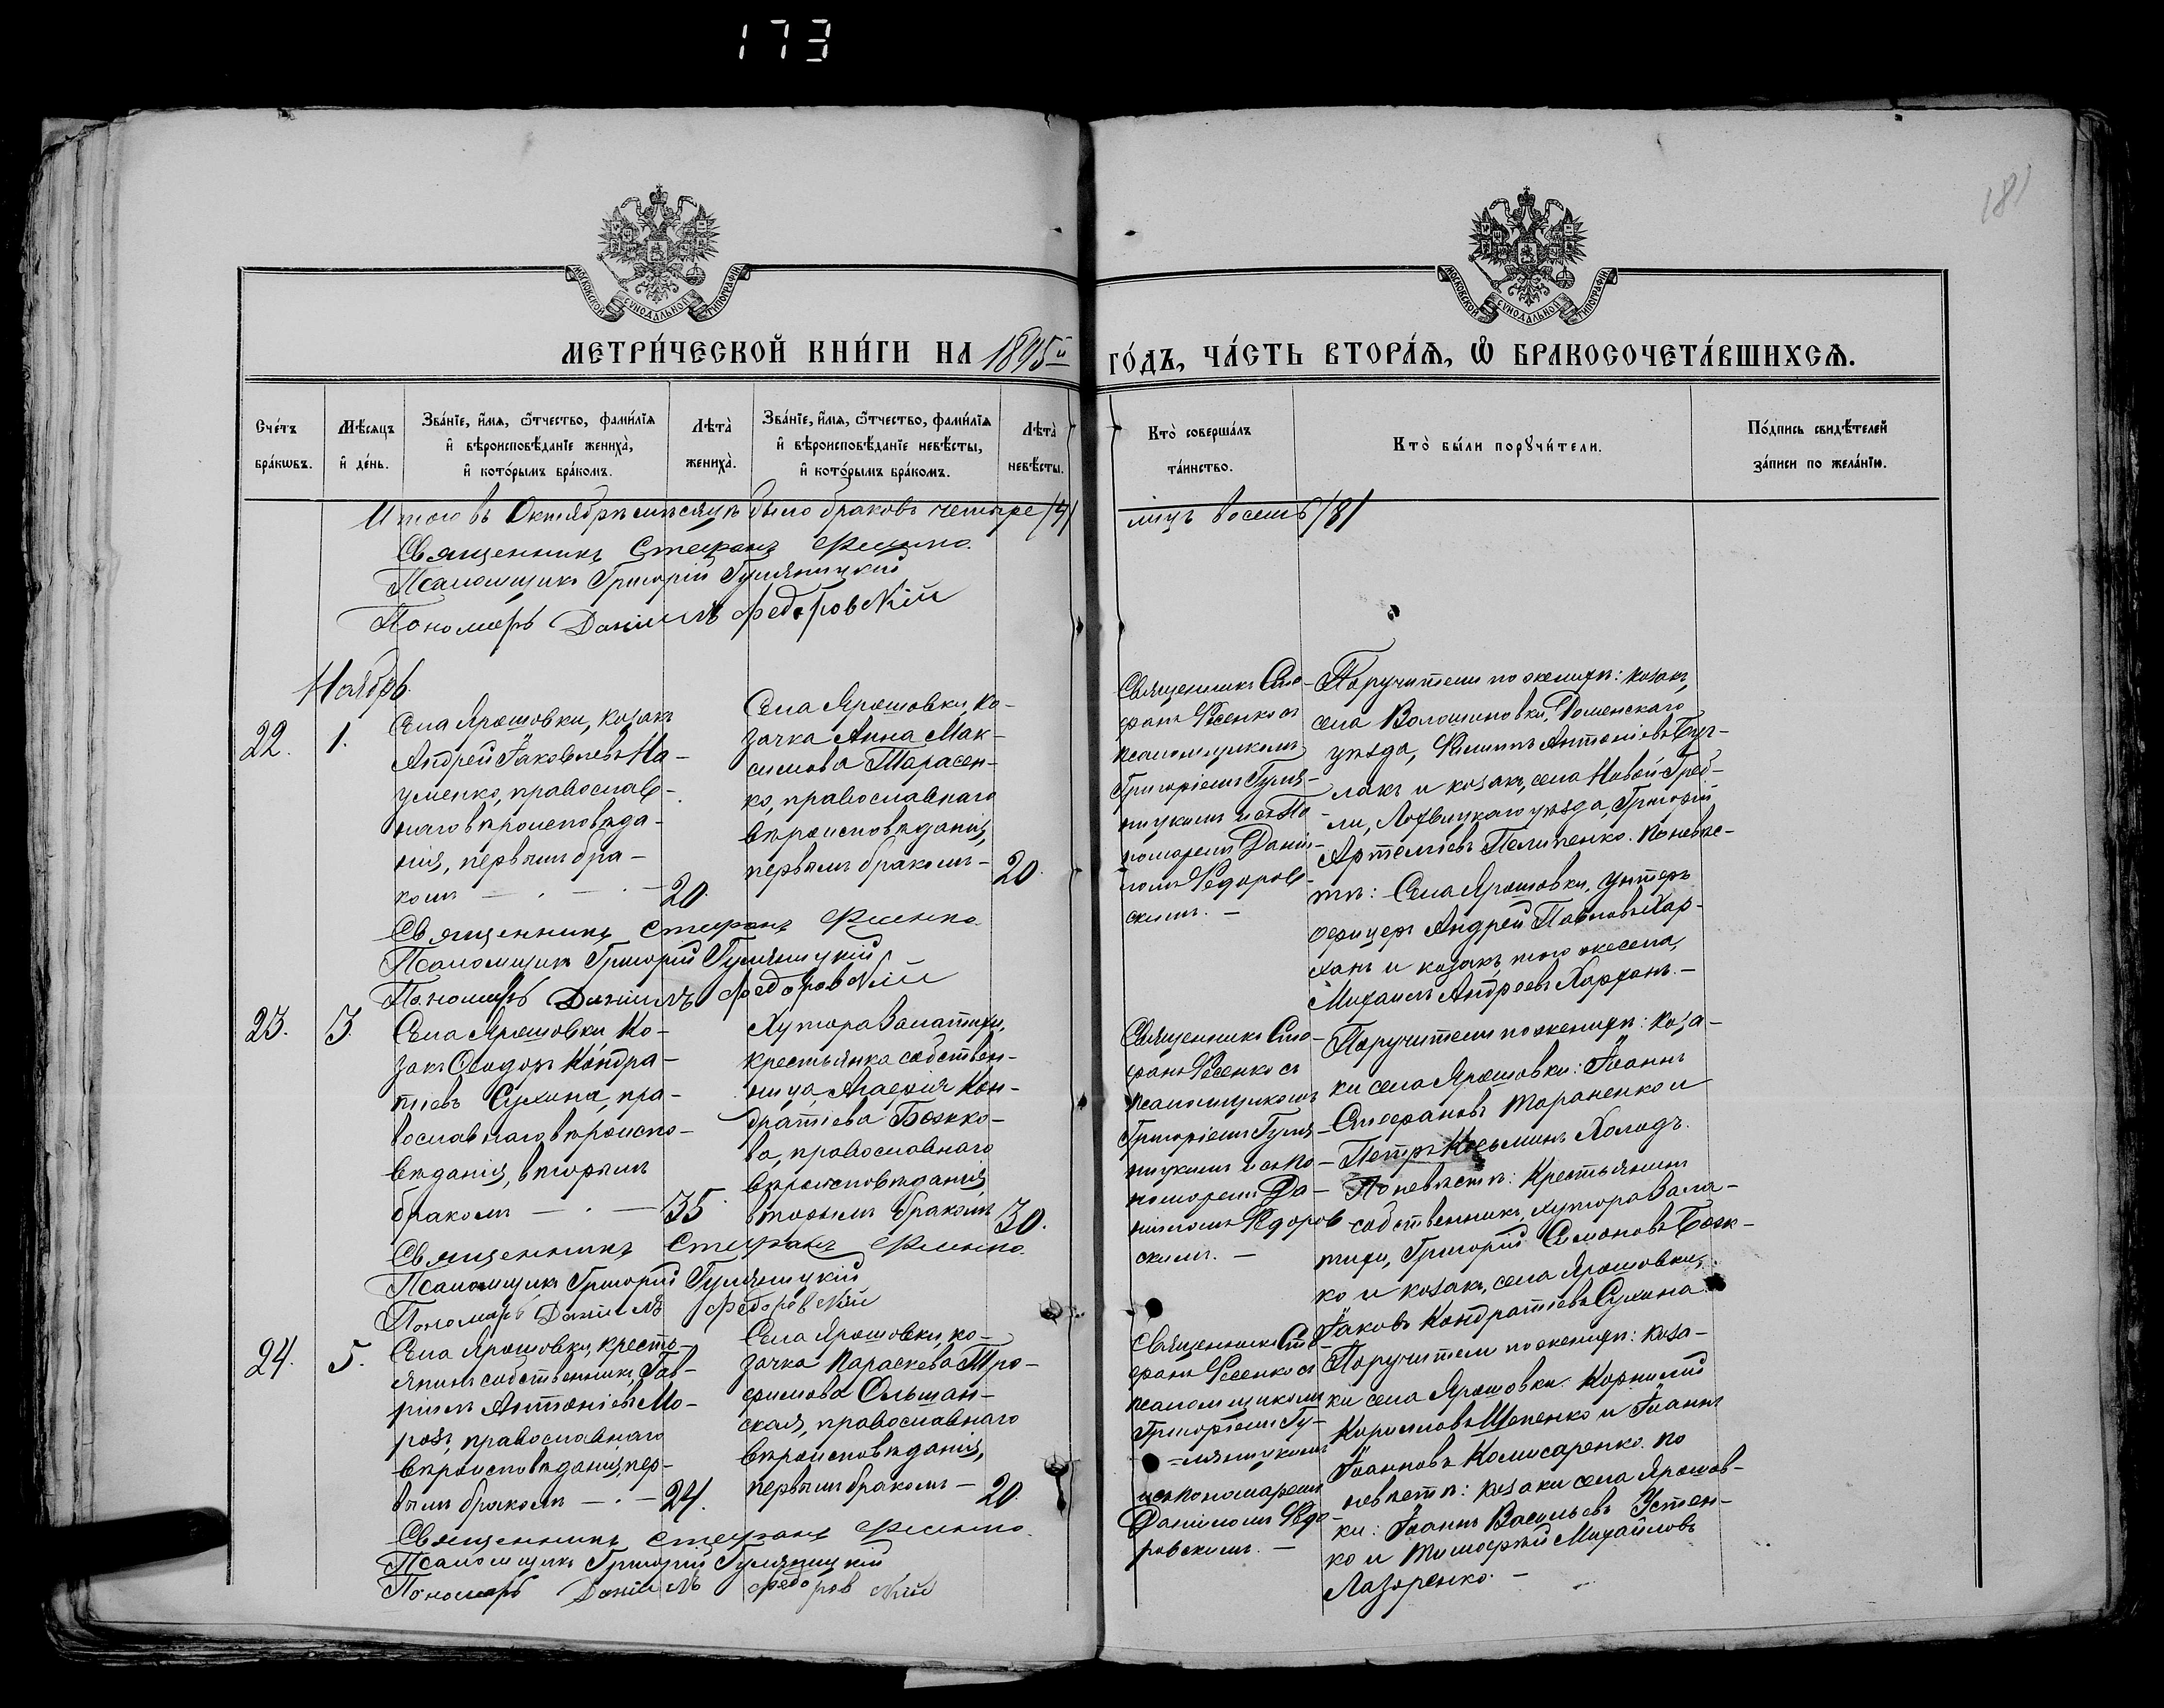 173
181
МОСКОВСКОЙ СѴНОДАЛЬНОЙ ТИПОГРАФІИ
МОСКОВСКОЙ СѴНОДАЛЬНОЙ ТИПОГРАФІИ
МЕТРИ́ЧЕСКОЙ КНИ́ГИ НА 1895й
ГО́ДЪ, ЧА́СТЬ ВТОРА́Ѧ, Ѽ БРАКОСОЧЕТА́ВШИХСѦ.
Сче́тъ бра́кѡвъ.
Мѣ́сяцъ и҆ де́нь.
Зва́нїе, и҆́мя, ѻ҆́тчество, фами́лїя и҆ вѣроисповѣ́данїе жениха̀, и҆ кото́рымъ бра́комъ.
Лѣ́та жениха̀.
Зва́нїе, и҆́мя, ѻ҆́тчество, фами́лїя и҆ вѣроисповѣ́данїе невѣ́сты, и҆ кото́рымъ бра́комъ.
Лѣ́та невѣ́сты.
Кто̀ соверша́лъ та́инство.
Кто̀ бы́ли порꙋчи́тели.
По́дпись свидѣ́телей за́писи по жела́нїю.
Итого въ Октябрѣ мѣсяцѣ было браковъ четыре /4/
лицъ восемь /8/
Священникъ Стефанъ
Псаломщикъ Григорій Гуляницкій
Пономарь Даніилъ Федоровскій
Ноябрь
22.
1.
Села Ярошовки, козакъ
Андрей Іаковлевъ На-
уменко, православ-
наго вѣроисповѣда-
нія, первымъ бра-
комъ — . — . —
20.
Села Ярошовки, ко-
зачка Анна Мак-
симова Тарасен-
ко, православнаго
вѣроисповѣданія,
первымъ бракомъ —
20.
Священникъ Сте-
фанъ Фесенко съ
псаломщикомъ
Григоріемъ Гуля-
ницкимъ и съ по
номаремъ Дані-
ломъ Федоров-
скимъ. —
Поручители по женихѣ: козакъ,
села Волошиновки, Роменскаго
уѣзда, Филиппъ Антоніевъ Буг-
лакъ и козакъ, села Новой-Греб-
ли, Лохвицкаго уѣзда, Григорій
Артеміевъ Пелипенко. По невѣс-
тѣ: Села Ярошовки, унтеръ
офицеръ Андрей Павловъ Хар-
ханъ и козакъ, того же села,
Михаилъ Андреевъ Харханъ. —
Священникъ Стефанъ
Псаломщикъ Григорій Гуляницкій
Пономарь Даніилъ Федоровскій
23.
3.
Села Ярошовки, Ко-
закъ Ѳеодоръ Кондра-
тіевъ Сухина, пра-
вославнаго вѣроиспо-
вѣданія, вторымъ
бракомъ — . —
35.
Хутора Залатихи,
крестьянка собствен-
ница, Агафія Кон-
дратіева Божко-
ва, православнаго
вѣроисповѣданія,
вторымъ бракомъ
30.
Священникъ Сте-
фанъ Фесенко съ
псаломщикомъ
Григоріемъ Гуля-
ницкимъ и съ по-
номаремъ Да-
ніиломъ Федоров
скимъ. —
Поручители по женихѣ: коза-
ки села Ярошовки: Іоаннъ
Стефановъ Тараненко и
Петръ Косьминъ Холодъ.
По невѣстѣ: Крестьянинъ
собственникъ, хутора Зала-
тихи, Григорій Симоновъ Бож-
ко и козакъ, села Ярошовки,
Іаковъ Кондратіевъ Сухина.
Священникъ Стефанъ
Псаломщикъ Григорій Гуляницкій
Пономарь Даніилъ Федоровскій
24.
5.
Села Ярошовки, кресть-
янинъ собственникъ, Гав-
ріилъ Антоніевъ Мо-
розъ, православнаго
вѣроисповѣданія, пер-
вымъ бракомъ — . —
24.
Села Ярошовки, ко-
зачка Параскева Тро-
фимова Ольшан-
ская, православнаго
вѣроисповѣданія,
первымъ бракомъ —
20.
Священникъ Сте-
фанъ Фесенко съ
псаломщикомъ
Григоріемъ Гу-
=ляницкимъ
и съ пономаремъ
Даніиломъ Федо-
ровскимъ. —
Поручители по женихѣ: коза-
ки села Ярошовки: Корнилій
Кириловъ Щепенко и Іоаннъ
Іоанновъ Комисаренко. По
невѣстѣ: козаки села Ярошов-
ки: Іоаннъ Васильевъ Устен-
ко и Тимофей Михайловъ
Лазоренко. —
Священникъ Стефанъ
Псаломщикъ Григорій Гуляницкій
Пономарь Даніилъ Федоровскій